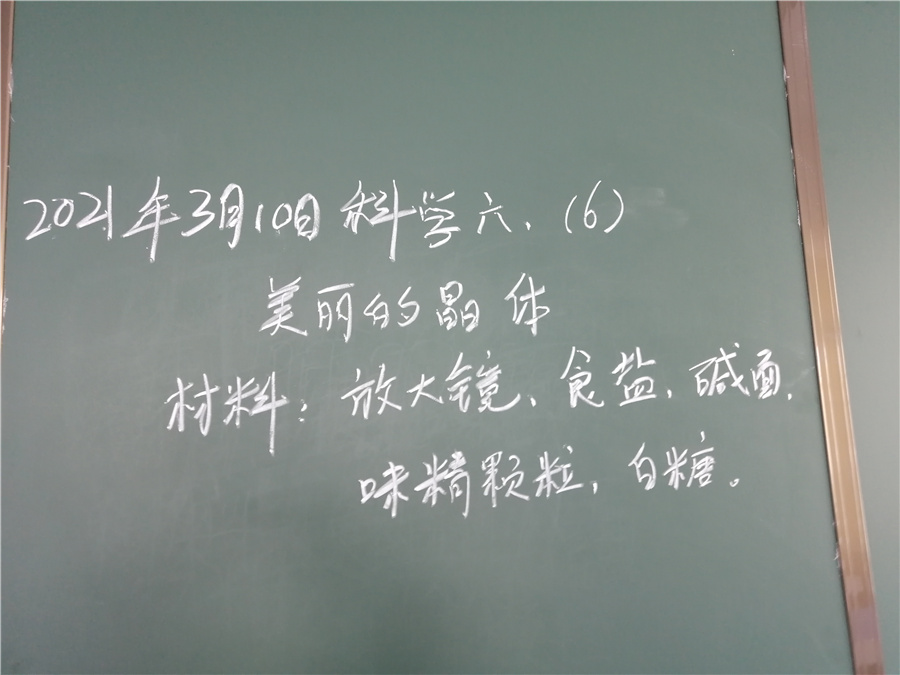 2021年3月10日科学六、(6)
美丽的晶体
材料：放大镜、食盐、碱面、
味精颗粒、白糖。